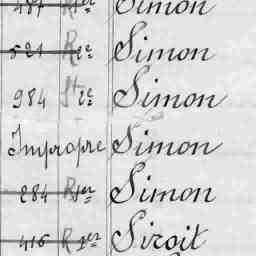 487 R 1er Simon
521 R 2e Simon
984 St 2e Simon
Impropre Simon
284 R 1er Simon
416 R 2er Siroit